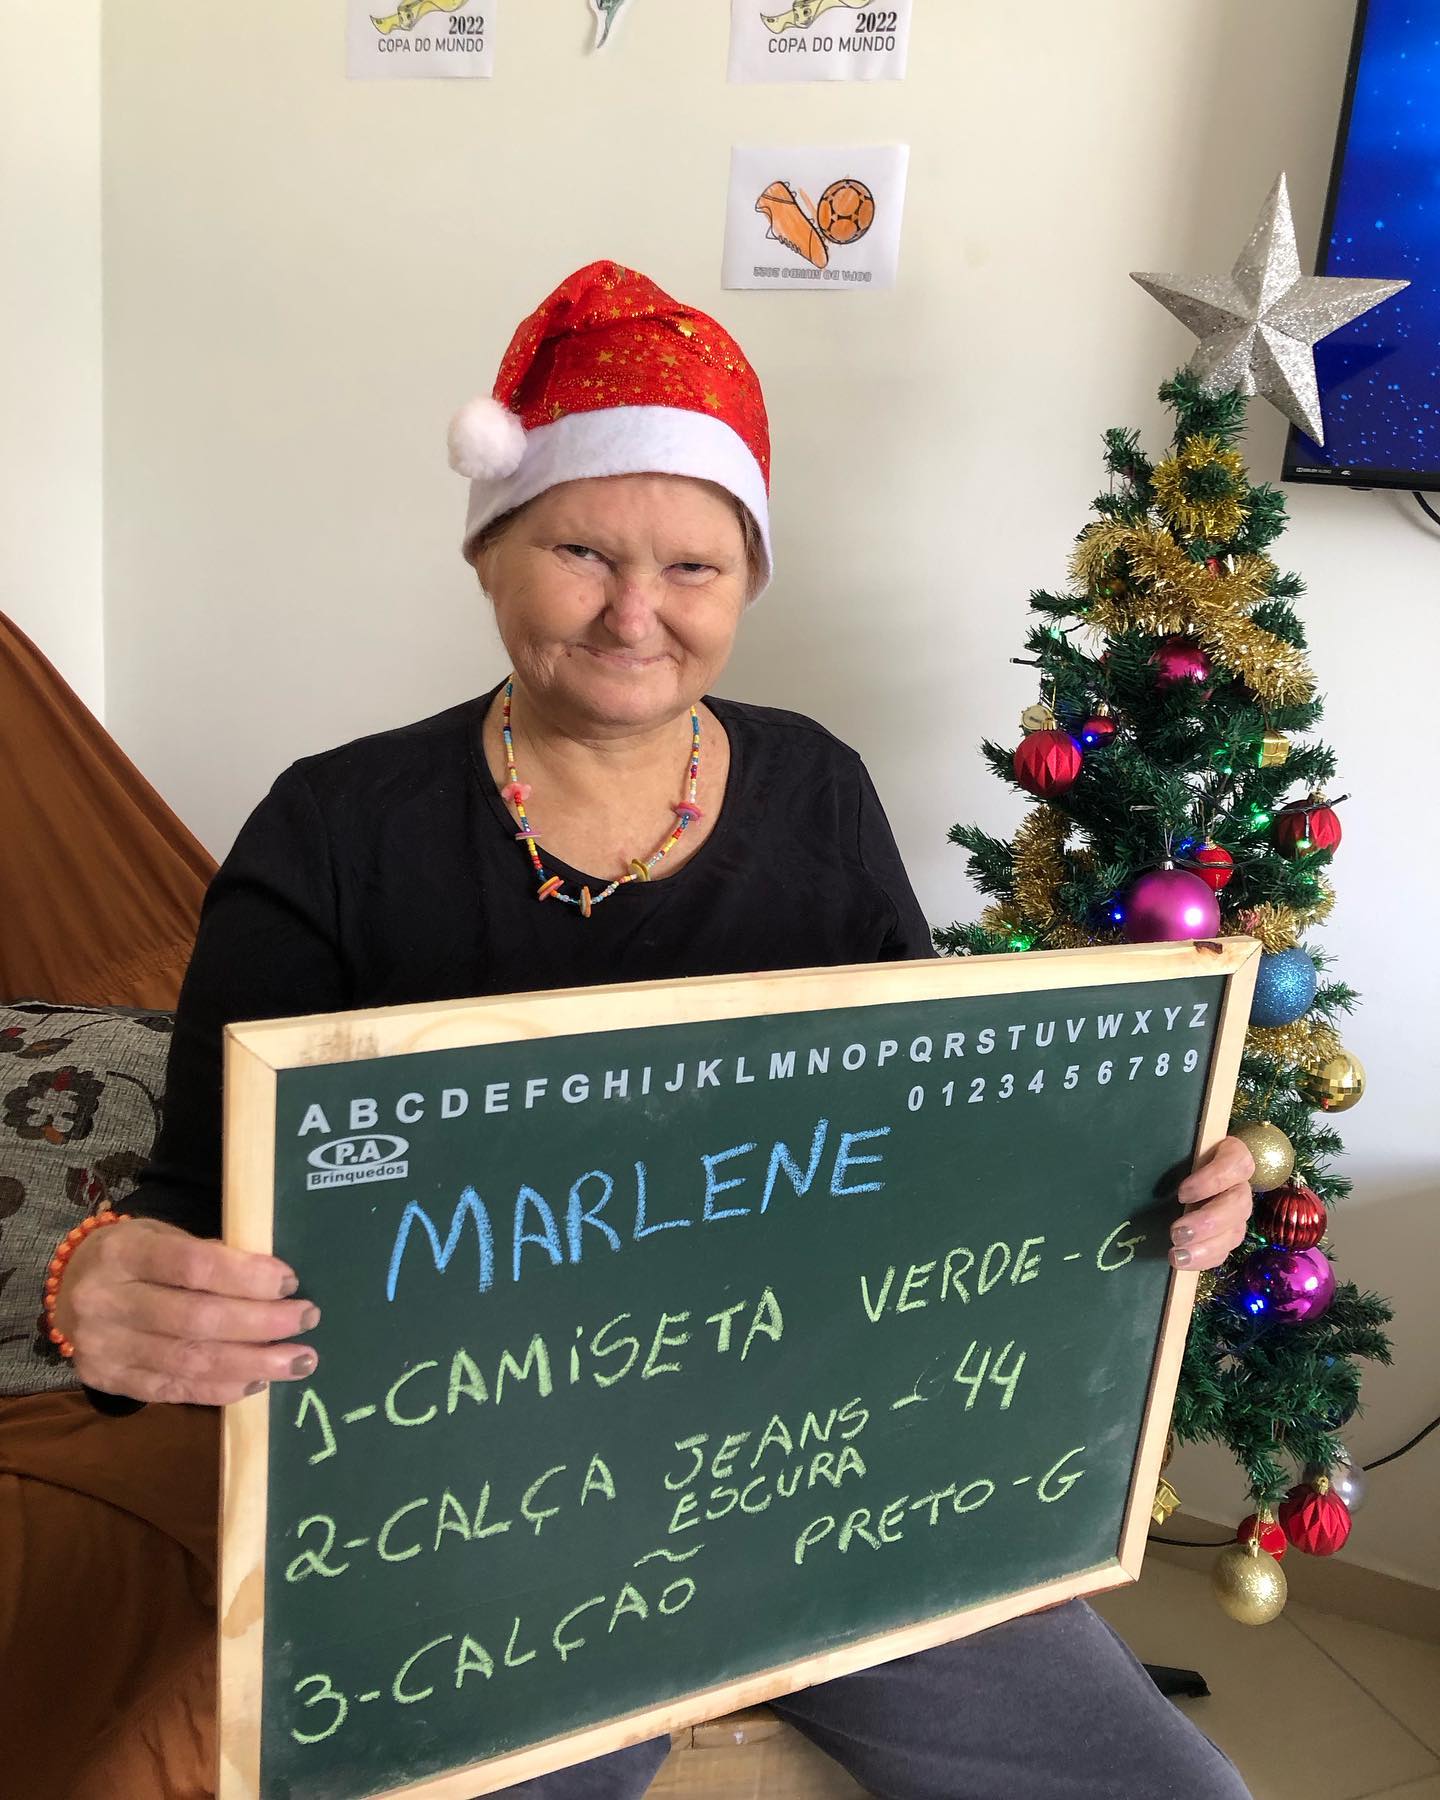 2022
COPA DO MUNDO
2022
COPA DO MUNDO
COPA DO MUNDO 2022
DOLBY AUDIO 4K
A B C D E F G H I J K L M N O P Q R S T U V W X Y Z
0 1 2 3 4 5 6 7 8 9
P.A
Brinquedos
MARLENE
1-CAMISETA VERDE - G
2-CALÇA JEANS - 44
ESCURA
3-CALÇAÕ PRETO - G